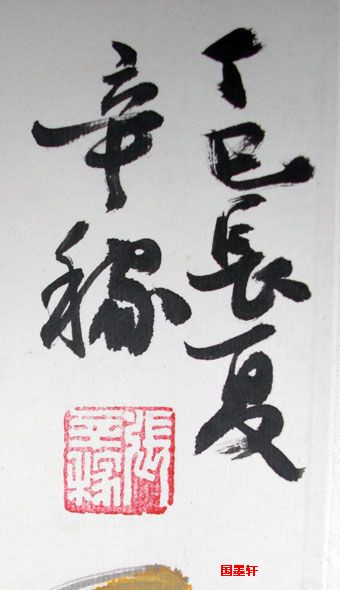 丁巳长夏
辛稼
張辛稼
国墨轩